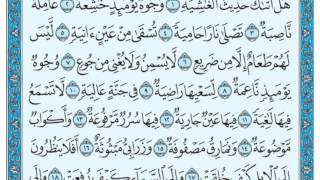 هَلْ أَتَىٰكَ حَدِيثُ الْغَٰشِيَةِ ١ وُجُوهٌ يَوْمَئِذٍ خَٰشِعَةٌ ٢ عَامِلَةٌ
نَّاصِبَةٌ ٣ تَصْلَىٰ نَارًا حَامِيَةً ٤ تُسْقَىٰ مِنْ عَيْنٍ ءَانِيَةٍ ٥ لَّيْسَ
لَهُمْ طَعَامٌ إِلَّا مِن ضَرِيعٍ ٦ لَّا يُسْمِنُ وَلَا يُغْنِي مِن جُوعٍ ٧ وُجُوهٌ
يَوْمَئِذٍ نَّاعِمَةٌ ٨ لِّسَعْيِهَا رَاضِيَةٌ ٩ فِي جَنَّةٍ عَالِيَةٍ ١٠ لَّا تَسْمَعُ
فِيهَا لَٰغِيَةً ١١ فِيهَا عَيْنٌ جَارِيَةٌ ١٢ فِيهَا سُرُرٌ مَّرْفُوعَةٌ ١٣ وَأَكْوَابٌ
مَّوْضُوعَةٌ ١٤ وَنَمَارِقُ مَصْفُوفَةٌ ١٥ وَزَرَابِيُّ مَبْثُوثَةٌ ١٦ أَفَلَا يَنظُرُونَ
إِلَى الْإِبِلِ كَيْفَ خُلِقَتْ ١٧ وَإِلَى السَّمَاءِ كَيْفَ رُفِعَتْ ١٨ وَإِلَى